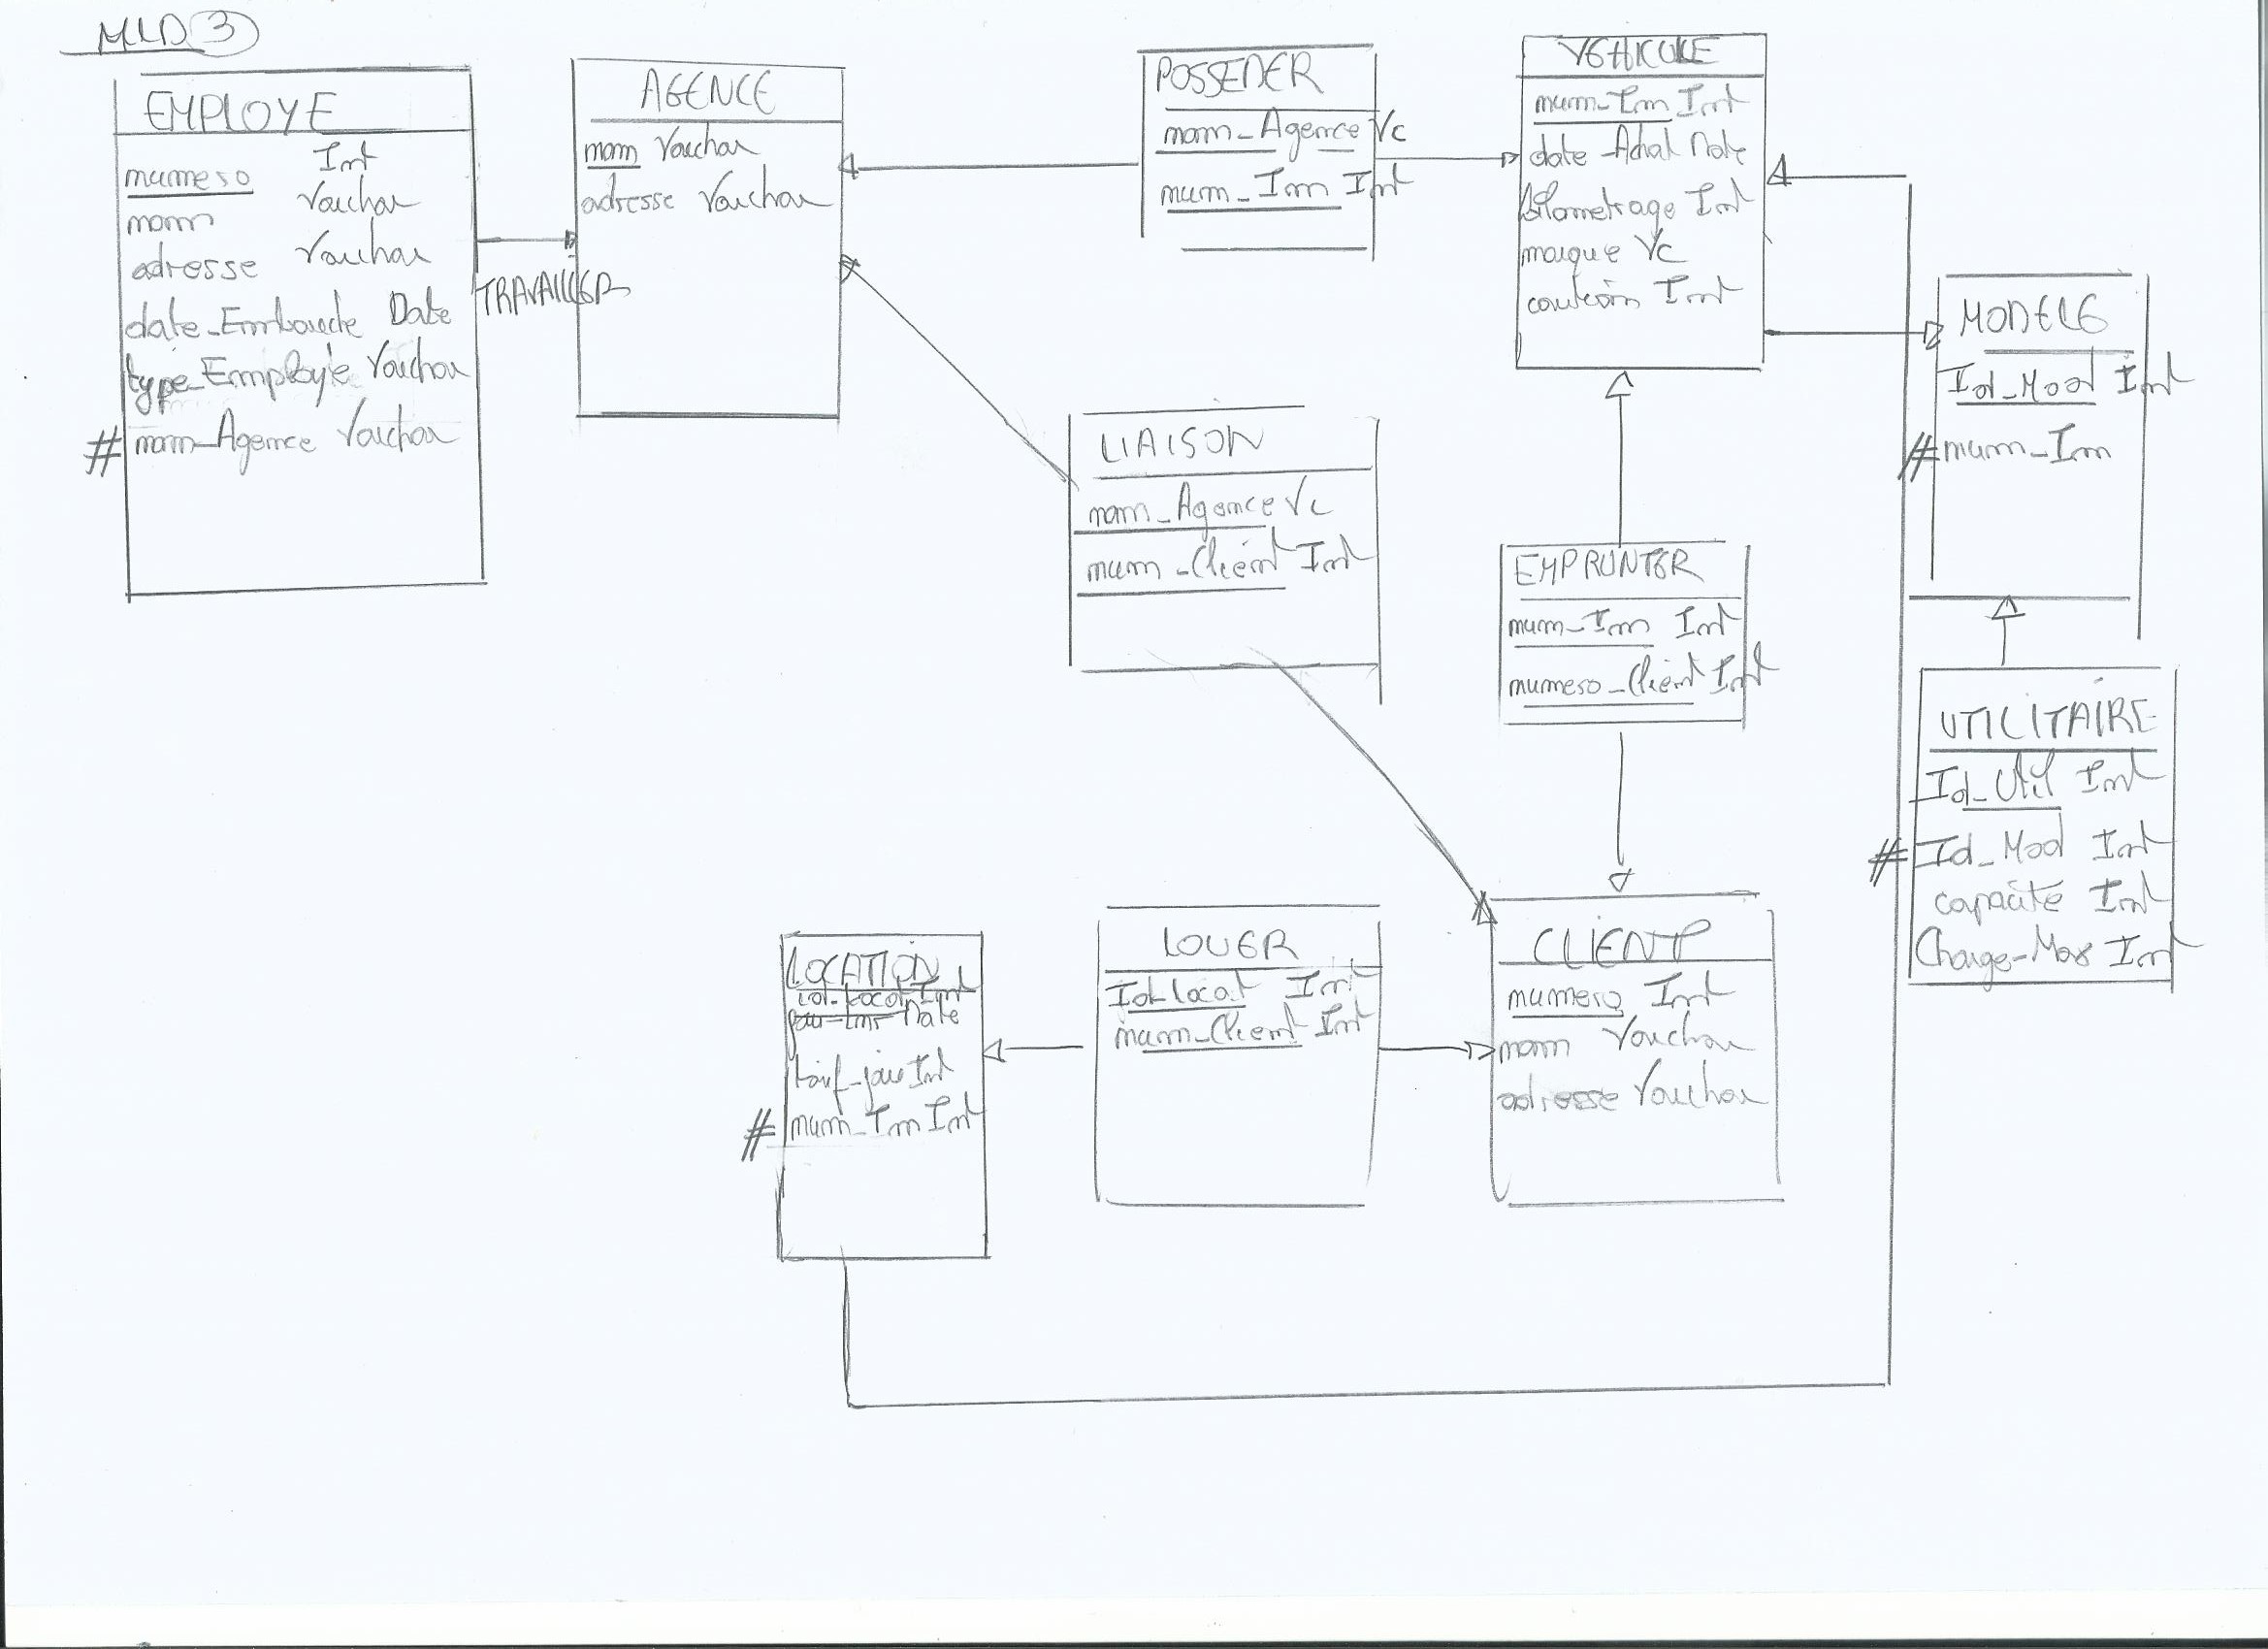 MLD 3
EMPLOYE
numero Int
nom Varchar
adresse Varchar
date_Embauche Date
type_Employé Varchar
# nom_Agence Varchar
TRAVAILLER
AGENCE
nom Varchar
adresse Varchar
POSSEDER
nom_Agence Vc
num_Im Int
VEHICULE
num_Im Int
date_Achat Date
kilometrage Int
marque Vc
Int
MODELE
Id_Mod Int
# num_Im
LIAISON
nom_Agence Vc
num_Client Int
EMPRUNTER
num_Im Int
numero_Client Int
UTILITAIRE
Id_Util Int
# Id_Mod Int
capacité Int
Charge_Max Int
LOCATION
Id_Locat Int
Date
tarif_jour Int
# num_Im Int
LOUER
Id_locat Int
num_Client Int
CLIENT
numero Int
nom Varchar
adresse Varchar